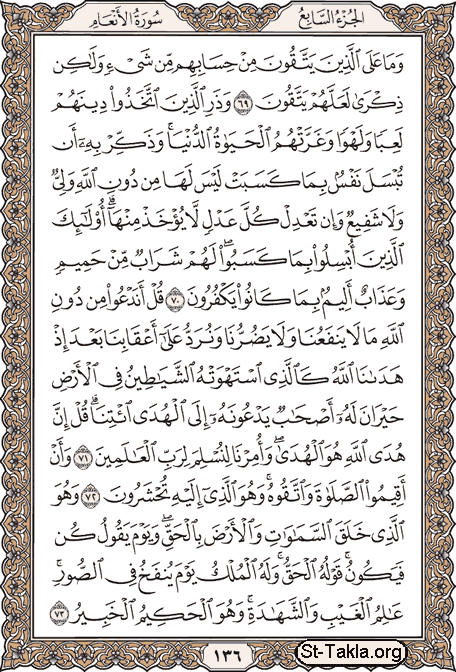 الجزء السابع
سورة الأنعام
وَمَا عَلَى ٱلَّذِينَ يَتَّقُونَ مِنْ حِسَابِهِم مِّن شَىْءٍ وَلَٰكِن
ذِكْرَىٰ لَعَلَّهُمْ يَتَّقُونَ ٦٩ وَذَرِ ٱلَّذِينَ ٱتَّخَذُوا۟ دِينَهُمْ
لَعِبًا وَلَهْوًا وَغَرَّتْهُمُ ٱلْحَيَوٰةُ ٱلدُّنْيَا ۚ وَذَكِّرْ بِهِۦٓ أَن
تُبْسَلَ نَفْسٌۢ بِمَا كَسَبَتْ لَيْسَ لَهَا مِن دُونِ ٱللَّهِ وَلِىٌّ
وَلَا شَفِيعٌ وَإِن تَعْدِلْ كُلَّ عَدْلٍ لَّا يُؤْخَذْ مِنْهَآ ۗ أُو۟لَٰٓئِكَ
ٱلَّذِينَ أُبْسِلُوا۟ بِمَا كَسَبُوا۟ ۖ لَهُمْ شَرَابٌ مِّنْ حَمِيمٍ
وَعَذَابٌ أَلِيمٌۢ بِمَا كَانُوا۟ يَكْفُرُونَ ٧٠ قُلْ أَنَدْعُوا۟ مِن دُونِ
ٱللَّهِ مَا لَا يَنفَعُنَا وَلَا يَضُرُّنَا وَنُرَدُّ عَلَىٰٓ أَعْقَابِنَا بَعْدَ إِذْ
هَدَىٰنَا ٱللَّهُ كَٱلَّذِى ٱسْتَهْوَتْهُ ٱلشَّيَٰطِينُ فِى ٱلْأَرْضِ
حَيْرَانَ لَهُۥٓ أَصْحَٰبٌ يَدْعُونَهُۥٓ إِلَى ٱلْهُدَى ٱئْتِنَا ۗ قُلْ إِنَّ
هُدَى ٱللَّهِ هُوَ ٱلْهُدَىٰ ۖ وَأُمِرْنَا لِنُسْلِمَ لِرَبِّ ٱلْعَٰلَمِينَ ٧١ وَأَنْ
أَقِيمُوا۟ ٱلصَّلَوٰةَ وَٱتَّقُوهُ ۚ وَهُوَ ٱلَّذِىٓ إِلَيْهِ تُحْشَرُونَ ٧٢ وَهُوَ
ٱلَّذِى خَلَقَ ٱلسَّمَٰوَٰتِ وَٱلْأَرْضَ بِٱلْحَقِّ ۖ وَيَوْمَ يَقُولُ كُن
فَيَكُونُ ۚ قَوْلُهُ ٱلْحَقُّ ۚ وَلَهُ ٱلْمُلْكُ يَوْمَ يُنفَخُ فِى ٱلصُّورِ ۚ
عَٰلِمُ ٱلْغَيْبِ وَٱلشَّهَٰدَةِ ۚ وَهُوَ ٱلْحَكِيمُ ٱلْخَبِيرُ ٧٣
١٣٦
St-Takla.org